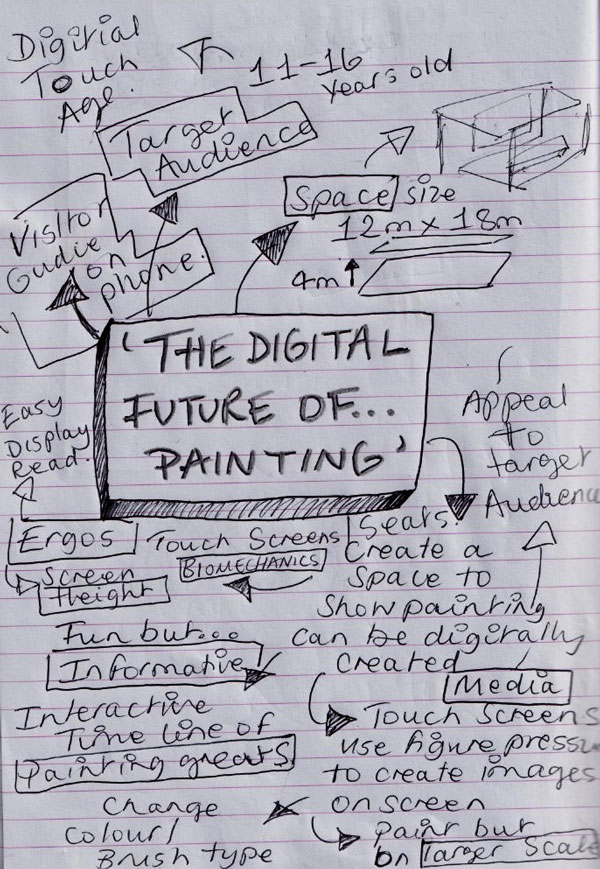 Digitial
Touch
Age.
11-16
years old
Target
Audience
Visitor
Gudie
on
phone.
Space size
12m x 18m
4m
'THE DIGITAL
FUTURE OF...
PAINTING'
Easy
Display
Read.
Appeal
to
target
Audience
Ergos
Screen
Height
Touch Screens
BIOMECHANICS
Seats.
Create a
Space to
Show painting
can be digitally
created
Fun but...
Informative
Media
Interactive
Time line of
Painting greats
Touch Screens
use figure pressu
to create images
on screen
Change
Colour/
Brush type
paint but
on larger Scale